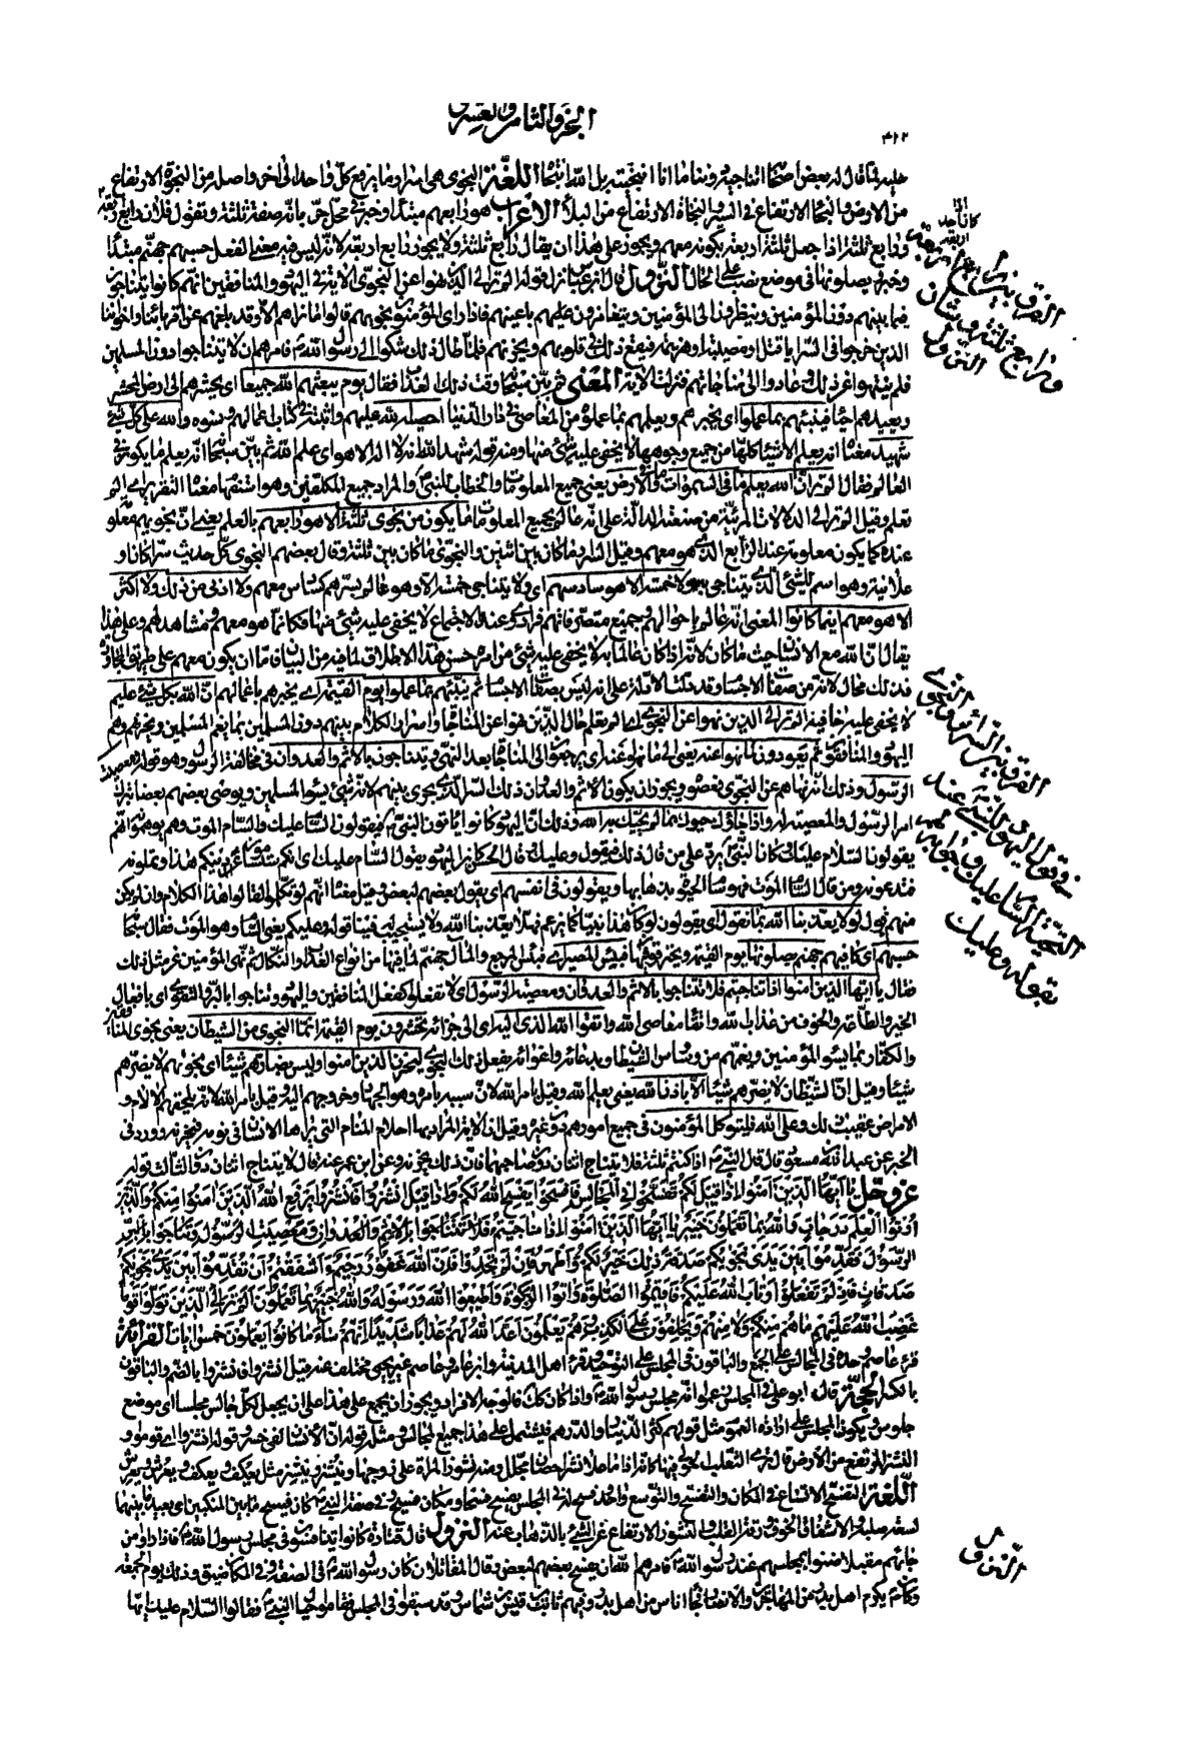 الجزو الثامن والعشرون
٤١٢
عليه لما قال له بعض أصحابه اتناجيه دوننا ما انا انتجيته بل الله انتجاه اللغة النجوى هي اسرار ما يرفع كل واحد الى اخر واصله من النجوة الارتفاع
من الارض والنجاء الارتفاع في السير والنجاة الارتفاع من البلاء الاعراب هو رابعهم مبتدأ وخبر في محل جر بانه صفة ثلثة وتقول فلان رابع اربعة
ورابع ثلثة اذا جعل ثلثة اربعة بكونه معهم ويجوز على هذا ان يقال رابع ثلثة ولا يجوز رابع اربعة لانه ليس فيه معنى الفعل حسبهم جهنم مبتدأ
وخبر يصلونها في موضع نصب على الحال النزول قال ابن عباس نزل قوله الم تر الى الذين نهوا عن النجوى الاية في اليهود والمنافقين انهم كانوا يتناجون
فيما بينهم دون المؤمنين وينظرون الى المؤمنين ويتغامزون عليهم باعينهم فاذا راى المؤمنون نجويهم قالوا ما نراهم الا وقد بلغهم عن اقربائنا واخواننا
الذين خرجوا في السرايا قتل او مصيبة او هزيمة فيقع ذلك في قلوبهم ويحزنهم فلما طال ذلك شكوا الى رسول الله فامرهم ان لا يتناجوا دون المسلمين
فلم ينتهوا عن ذلك وعادوا الى مناجاتهم فنزلت الاية المعنى ثم بين سبحانه وقت ذلك العذاب فقال يوم يبعثهم الله جميعا اى يحشرهم الى ارض المحشر
ويعيدهم احياء فينبئهم بما عملوا اى يخبرهم ويعلمهم بما عملوه من المعاصي في دار الدنيا احصاه الله عليهم واثبته في كتاب اعمالهم ونسوه والله على كل شيء
شهيد معناه انه يعلم الاشياء كلها من جميع وجوهها لا يخفى عليه شيء منها ومنه قوله شهد الله انه لا اله الا هو اى علم الله ثم بين سبحانه انه يعلم ما يكون في
العالم فقال الم تر ان الله يعلم ما في السموات وما في الارض يعنى جميع المعلومات والخطاب للنبي والمراد جميع المكلفين وهو استفهام معناه التقرير اى الم
تعلم وقيل الم تر الى الدلالات المرئية من صنعته الدالة على انه عالم بجميع المعلومات ما يكون من نجوى ثلثة الا هو رابعهم بالعلم يعنى ان نجويهم معلومة
عنده كما يكون معلومة عند الرابع الذى هو معهم وقيل السرار ما كان بين اثنين والنجوى ما كان بين ثلثة وقال بعضهم النجوى كل حديث سرا كان او
علانية وهو اسم للشيء الذى يتناجى به ولا خمسة الا هو سادسهم اى ولا يتناجى خمسة الا وهو عالم بسرهم كسادس معهم ولا ادنى من ذلك ولا اكثر
الا هو معهم اينما كانوا المعنى انه عالم باحوالهم وجميع متصرفاتهم فرادى وعند الاجتماع لا يخفى عليه شيء منها فكانه هو معهم ومشاهد لهم وعلى هذا
يقال ان الله مع الانسان حيث ما كان لانه اذا كان عالما به لا يخفى عليه شيء من امره حسن هذا الاطلاق لما فيه من البيان فاما ان يكون معهم على طريق المجاورة
فذلك محال لانه من صفات الاجسام وقد دلت الادلة على انه ليس بصفات الاجسام ثم ينبئهم بما عملوا يوم القيمة اى يخبرهم باعمالهم ان الله بكل شيء عليم
لا يخفى عليه خافية الم تر الى الذين نهوا عن النجوى اى الم تعلم حال الذين نهوا عن المناجاة واسرار الكلام بينهم دون المسلمين بما يغم المسلمين ويحزنهم وهم
اليهود والمنافقون ثم يعودون لما نهوا عنه يعنى الى ما نهوا عنه اى يرجعون الى المناجاة بعد النهى ويتناجون بالاثم والعدوان في مخالفة الرسول وهو قوله ومعصيت
الرسول وذلك انه نهاهم عن النجوى فعصوه ويجوز ان يكون الاثم والعدوان ذلك السر الذى يجرى بينهم لانه شيء يسوء المسلمين ويوصى بعضهم بعضا بترك
امر الرسول والمعصية له واذا جاؤك حيوك بما لم يحيك به الله وذلك ان اليهود كانوا ياتون النبي فيقولون السام عليك والسام الموت وهم يوهمونه انهم
يقولون السلام عليك وكان النبي يرد على من قال ذلك بقول وعليك قال الحسن كان اليهود يقول السام عليك اى انكم ستسأمون دينكم هذا وتملونه
فتدعونه ومن قال السام الموت فهو سام الحيوة بذهابها ويقولون في انفسهم اى يقول بعضهم لبعض وقيل معناه انهم لو تكلموا لقالوا هذا الكلام وان لم يكن
منهم قول لولا يعذبنا الله بما نقول اى يقولون لو كان هذا نبيا كما يزعم فهلا يعذبنا الله ولا يستجيب فينا قوله وعليكم يعنى السام وهو الموت فقال سبحانه
حسبهم اى كافيهم جهنم يصلونها يوم القيمة ويحترقون فيها فبئس المصير اى فبئس المرجع والمآل جهنم لما فيها من انواع العذاب والنكال ثم نهى المؤمنين عن مثل ذلك
فقال يا ايها الذين امنوا اذا تناجيتم فلا تتناجوا بالاثم والعدوان ومعصيت الرسول اى لا تفعلوا كفعل المنافقين واليهود وتناجوا بالبر والتقوى اى بافعال
الخير والطاعة والخوف من عذاب الله واتقاء معاصى الله واتقوا الله الذى اليه تحشرون يوم القيمة انما النجوى من الشيطان يعنى نجوى المنافقين
والكفار بما يسوء المؤمنين ويغمهم من وساوس الشيطان وبدعائه واغوائه يفعل ذلك النجوى ليحزن الذين امنوا وليس بضارهم شيئا اى نجواهم لا يضرهم
شيئا وقيل ان الشيطان لا يضرهم شيئا الا باذن الله يعنى بعلم الله وقيل بامر الله لان سببه بامره وهو الجهاد وخروجهم اليه وقيل بامر الله لانه يلحقهم الالام و
الامراض عقيب ذلك وعلى الله فليتوكل المؤمنون في جميع امورهم دون غيره وقيل ان الاية المراد بها احلام المنام التى يراها الانسان في نومه فيحزنه وورد في
الخبر عن عبد الله بن مسعود قال قال النبي اذا كنتم ثلثة فلا يتناج اثنان دون صاحبهما فان ذلك يحزنه وعن ابن عمر عنه قال لا يتناج اثنان دون الثالث قوله
عز وجل يَا أَيُّهَا الَّذِينَ آمَنُوا إِذَا قِيلَ لَكُمْ تَفَسَّحُوا فِي الْمَجَالِسِ فَافْسَحُوا يَفْسَحِ اللَّهُ لَكُمْ وَإِذَا قِيلَ انْشُزُوا فَانْشُزُوا يَرْفَعِ اللَّهُ الَّذِينَ آمَنُوا مِنْكُمْ وَالَّذِينَ
أُوتُوا الْعِلْمَ دَرَجَاتٍ وَاللَّهُ بِمَا تَعْمَلُونَ خَبِيرٌ يَا أَيُّهَا الَّذِينَ آمَنُوا إِذَا نَاجَيْتُمُ
الرَّسُولَ فَقَدِّمُوا بَيْنَ يَدَيْ نَجْوٰيكُمْ صَدَقَةً ذٰلِكَ خَيْرٌ لَكُمْ وَأَطْهَرُ فَإِنْ لَمْ تَجِدُوا فَإِنَّ اللَّهَ غَفُورٌ رَحِيمٌ ءَأَشْفَقْتُمْ أَنْ تُقَدِّمُوا بَيْنَ يَدَيْ نَجْوٰيكُمْ
صَدَقَاتٍ فَإِذْ لَمْ تَفْعَلُوا وَتَابَ اللَّهُ عَلَيْكُمْ فَأَقِيمُوا الصَّلٰوةَ وَآتُوا الزَّكٰوةَ وَأَطِيعُوا اللَّهَ وَرَسُولَهُ وَاللَّهُ خَبِيرٌ بِمَا تَعْمَلُونَ أَلَمْ تَرَ إِلَى الَّذِينَ تَوَلَّوْا قَوْمًا
غَضِبَ اللَّهُ عَلَيْهِمْ مَا هُمْ مِنْكُمْ وَلَا مِنْهُمْ وَيَحْلِفُونَ عَلَى الْكَذِبِ وَهُمْ يَعْلَمُونَ أَعَدَّ اللَّهُ لَهُمْ عَذَابًا شَدِيدًا إِنَّهُمْ سَاءَ مَا كَانُوا يَعْمَلُونَ خمس ايات القراءة
قرء عاصم وحده في المجالس على الجمع والباقون في المجلس على التوحيد وقرء اهل المدينة وابن عامر وعاصم غير يحيى مختلف عنه قيل انشزوا فانشزوا بالضم والباقون
بالكسر الحجة قال ابو على في المجلس زعموا انه مجلس رسول الله واذا كان كذلك فالوجه الافراد ويجوز ان يجمع على هذا على ان يجعل لكل جالس مجلسا اى موضع
جلوس ويكون المجلس على ارادة العموم مثل قولهم كثر الدينار والدرهم فيشتمل على هذا جميع المجالس ومثل قوله ان الانسان لفى خسر وقوله انشزوا اى قوموا و
النشز المرتفع من الارض قال ترى الثعلب الحولى فيها كانه اذا ما علا نشزا حصان مجلل ومنه نشوز المراة على زوجها وينشز وينشز مثل يعكف ويعكف ويعرش ويعرش
اللغة التفسح الاتساع في المكان والتفسح والتوسع واحد فسح له في المجلس يفسح فسحا ومكان فسيح وفي صفة النبي كان فسيح ما بين المنكبين اى بعيد ما بينهما
لسعة صدره والاشفاق الخوف ورقة القلب والنشوز الارتفاع عن الشيء بالذهاب عنه النزول قال قتادة كانوا يتنافسون في مجلس رسول الله فاذا راوا من
جاءهم مقبلا ضنوا بمجلسهم عند رسول الله فامرهم الله ان يفسح بعضهم لبعض وقال المقاتلان كان رسول الله في الصفة وفي المكان ضيق وذلك يوم الجمعة
وكان يكرم اهل بدر من المهاجرين والانصار فجاء اناس من اهل بدر وفيهم ثابت بن قيس بن شماس وقد سبقوا في المجلس فقاموا حيال النبي فقالوا السلام عليك ايها
الفرق بين رابع اربعة
ورابع ثلثة وشان
النزول
الفرق بين السر والنجوى
التحية السام عليك
بقوله وعليك
النزول